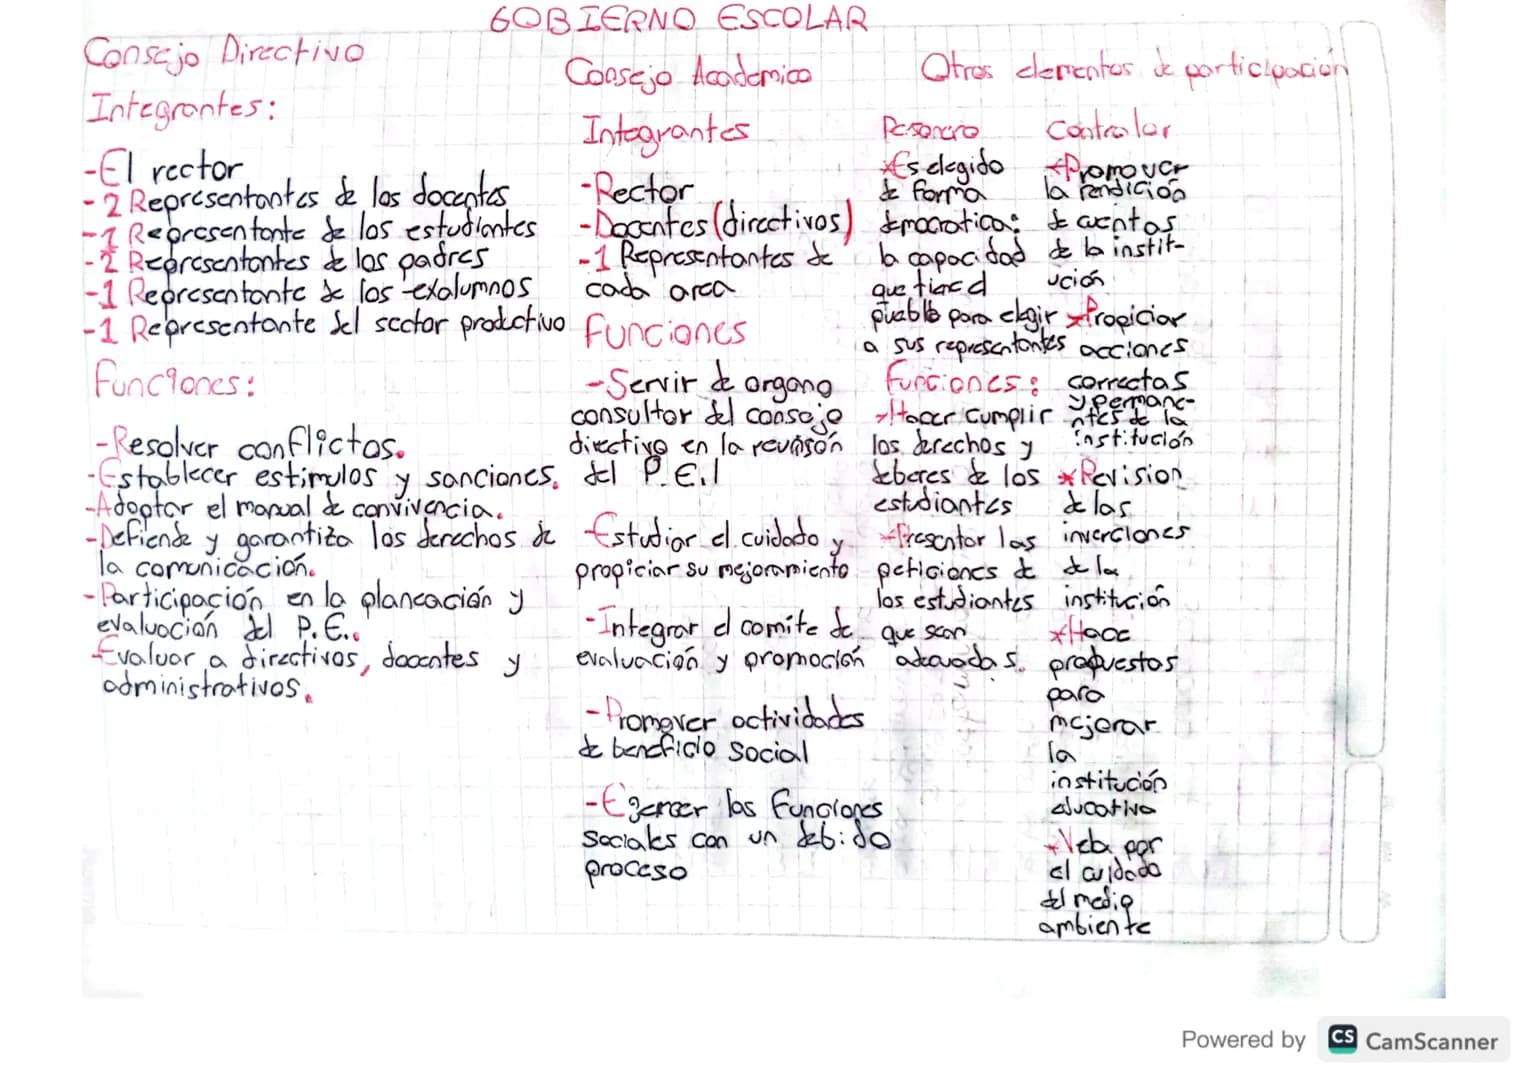 GOBIERNO ESCOLAR
Consejo Directivo
Integrantes:
-El rector
-2 Representantes de los docentes
-1 Representante de los estudiantes
-2 Representantes de los padres
-1 Representante de los exalumnos
-1 Representante del sector productivo
Funciones:
-Resolver conflictos.
-Establecer estimulos y sanciones.
-Adoptar el manual de convivencia.
-Defiende y garantiza los derechos de
la comunicación.
-Participación en la planeación y
evaluación del P.E..
-Evaluar a directivos, docentes y
administrativos.
Consejo Academico
Integrantes
-Rector
-Docentes (directivos)
-1 Representantes de
cada area
Funciones
-Servir de organo
consultor del consejo
directivo en la revisón
del P.E.I
-Estudiar el cuidado y
propiciar su mejoramiento
-Integrar el comite de
evaluación y promoción
-Promover actividades
de beneficio social
-Egercer las funciones
sociales con un debido
proceso
Otros elementos de participación
Personero
*Es elegido
de forma
democratica:
la capacidad
que tiene el
pueblo para elegir
a sus representantes
Funciones:
*Hacer cumplir
los derechos y
deberes de los
estudiantes
*Presentar las
peticiones de
los estudiantes
que sean
adecuadas.
Contralor
*Promover
la rendición
de cuentas
de la instit-
ución
*Propiciar
acciones
correctas
y permane-
ntes de la
institución
*Revision
de las
inverciones
de la
institución
*Hace
propuestas
para
mejorar
la
institución
educativa
*Vela por
el cuidado
del medio
ambiente
Powered by CS CamScanner